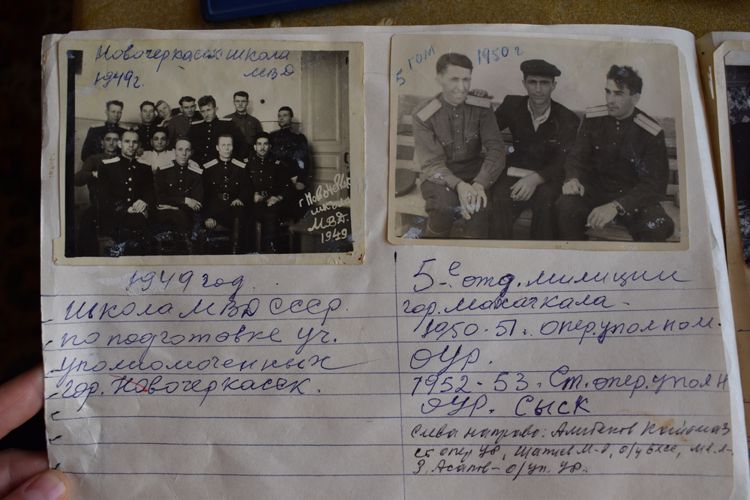 Новочеркасск школа
1949г. МВД
г Новочерк
школа
МВД.
1949
1949 год.
Школа МВД СССР.
по подготовке уч.
уполномоченных
гор. Новочеркасск.
5 ГОМ 1950 г
5-е отд. милиции
гор. Махачкала -
1950-51г. опер. уполном.
ОУР.
1952-53. Ст. опер. уполн
ОУР. СЫСК
Слева направо: Алибеков
ст опер УР, М-д, о/у БХСС,
о/уп. УР.